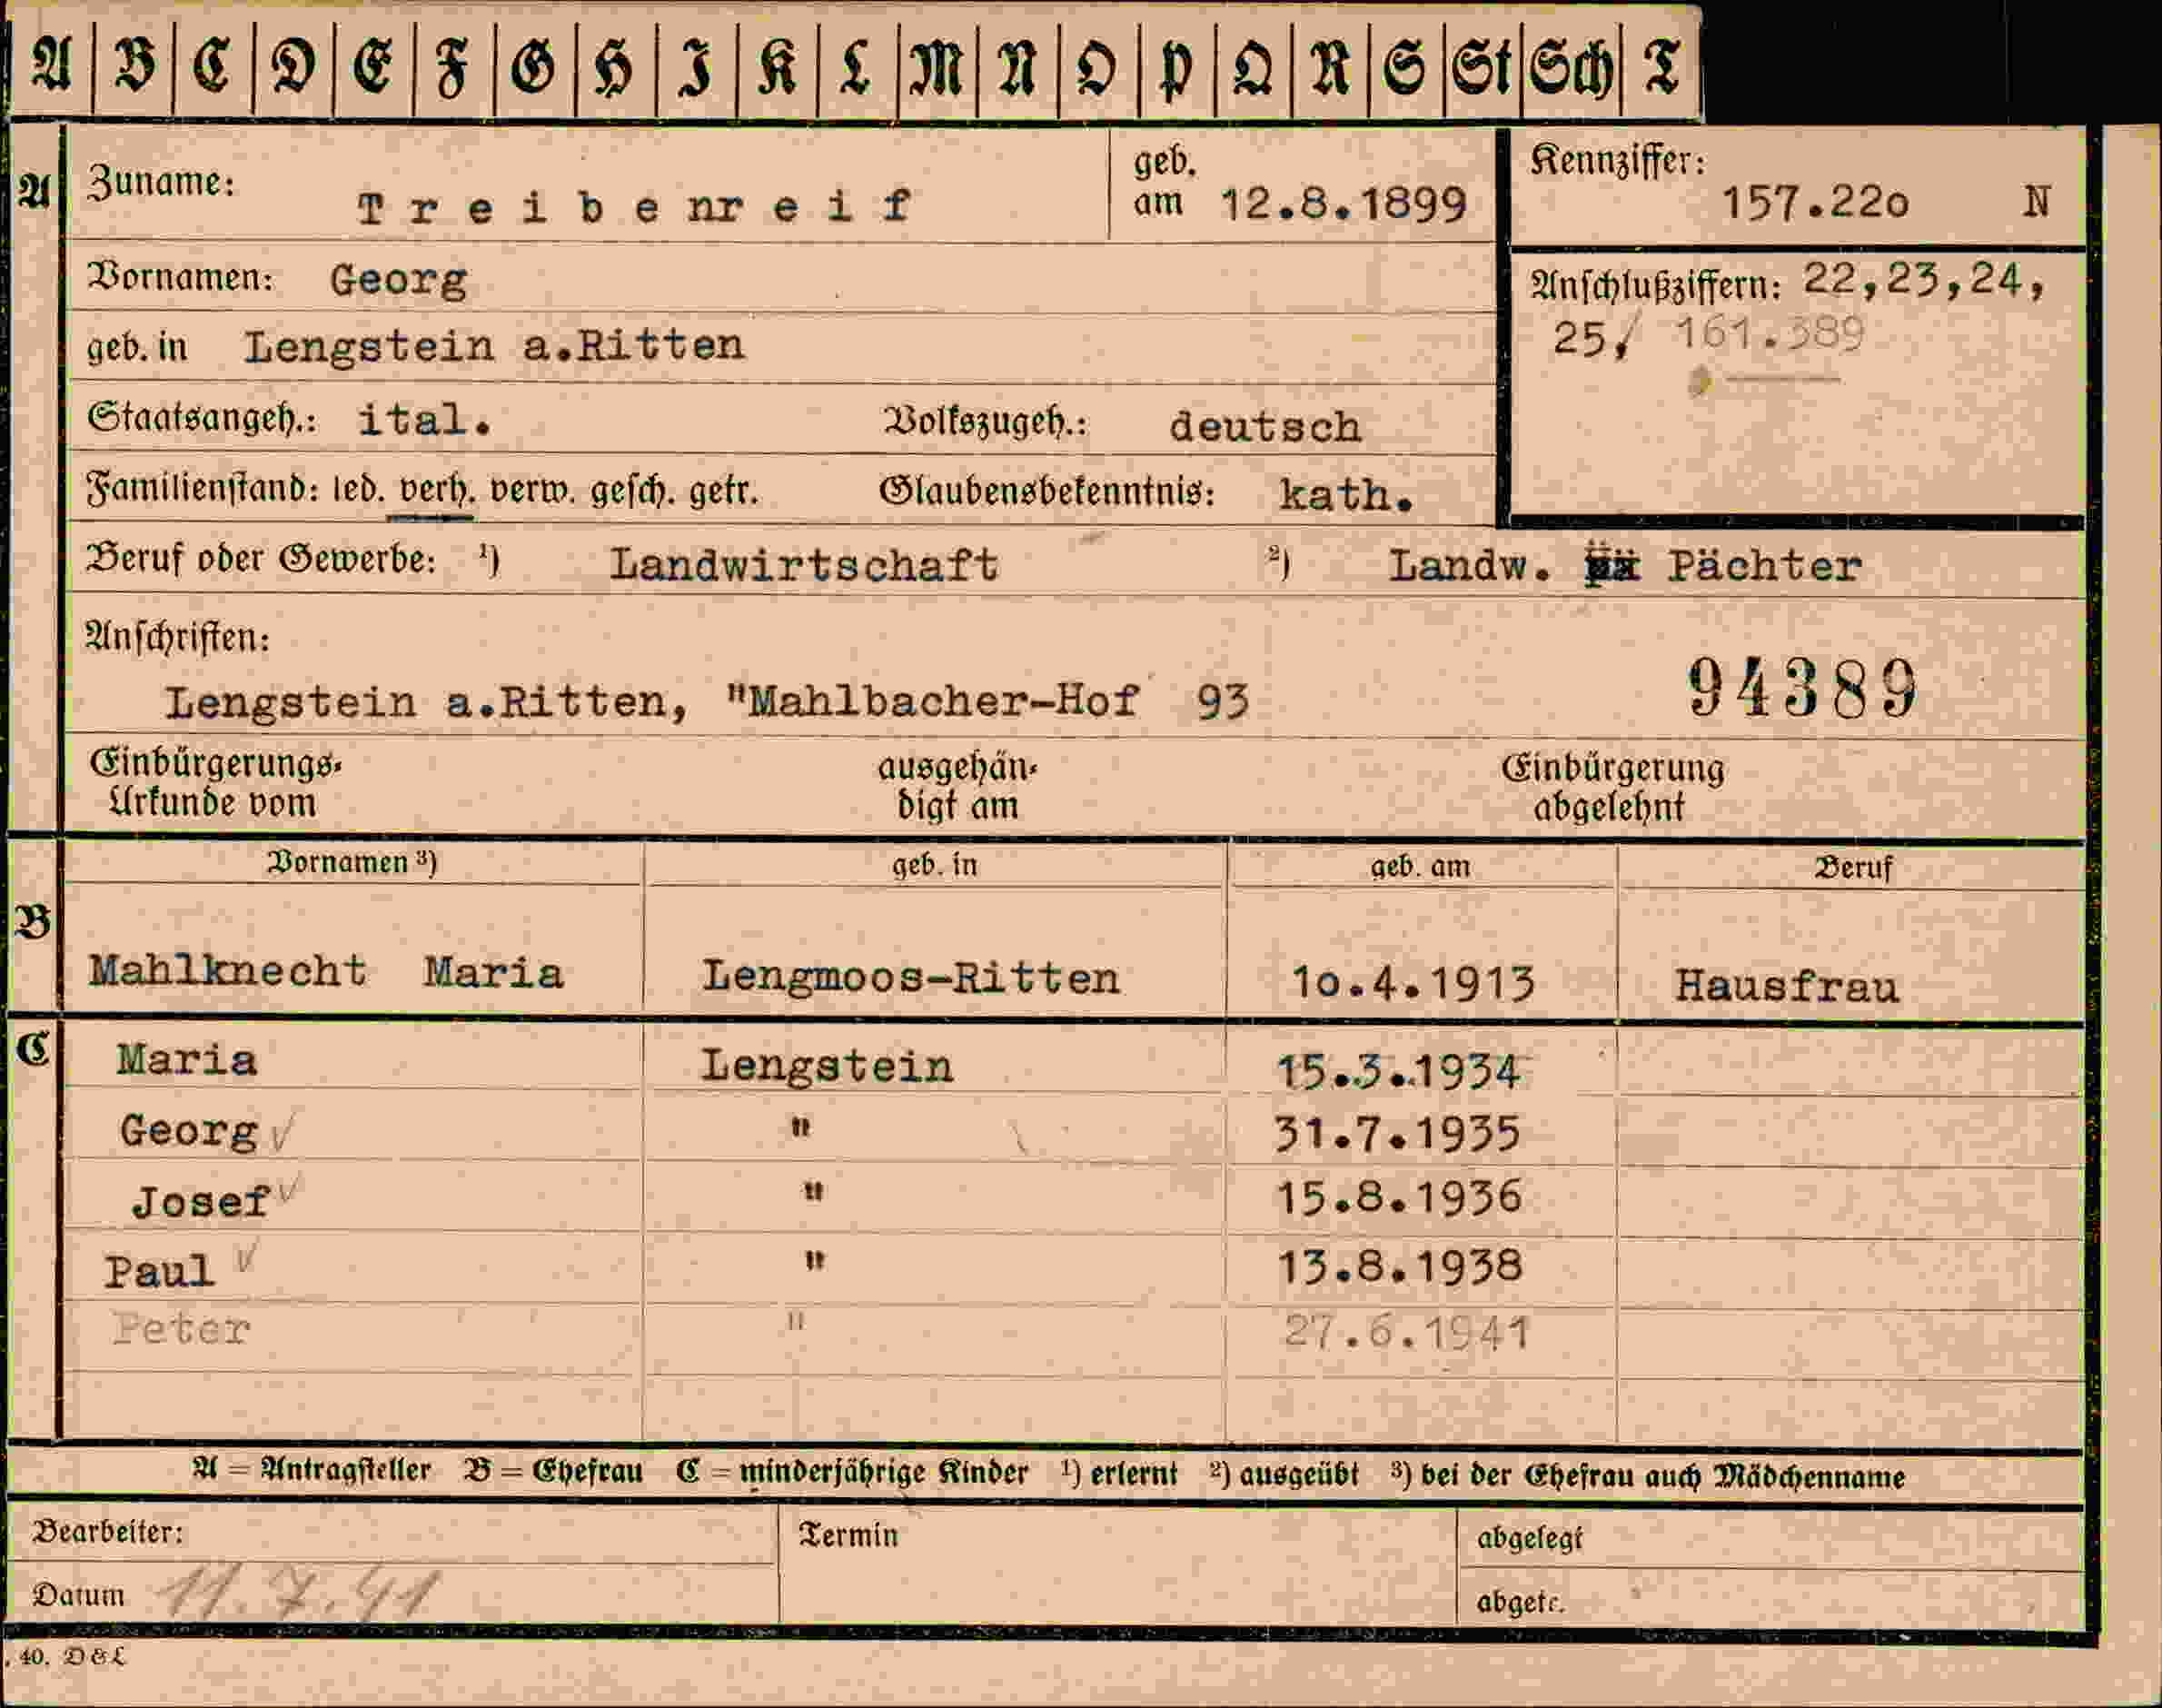 A B C D E F G H I K L M N O P Q R S St Sch T
A Zuname: Treibenreif geb. am 12.8.1899 Kennziffer: 157.22o N
Vornamen: Georg Anschlußziffern: 22,23,24,
geb. in Lengstein a.Ritten 25, 161.389
Staatsangeh.: ital. Volkszugeh.: deutsch
Familienstand: led. verh. verw. gesch. getr. Glaubensbekenntnis: kath.
Beruf oder Gewerbe: ¹) Landwirtschaft ²) Landw. Pächter
Anschriften:
Lengstein a.Ritten, "Mahlbacher-Hof 93 94389
Einbürgerungs- ausgehän- Einbürgerung
Urkunde vom digt am abgelehnt
Vornamen ³) geb. in geb. am Beruf
B
Mahlknecht Maria Lengmoos-Ritten 1o.4.1913 Hausfrau
C Maria Lengstein 15.3.1934
Georg " 31.7.1935
Josef " 15.8.1936
Paul " 13.8.1938
Peter " 27.6.1941
A = Antragsteller B = Ehefrau C = minderjährige Kinder ¹) erlernt ²) ausgeübt ³) bei der Ehefrau auch Mädchenname
Bearbeiter: Termin abgelegt
Datum 11.7.41 abgetr.
. 40. D & L